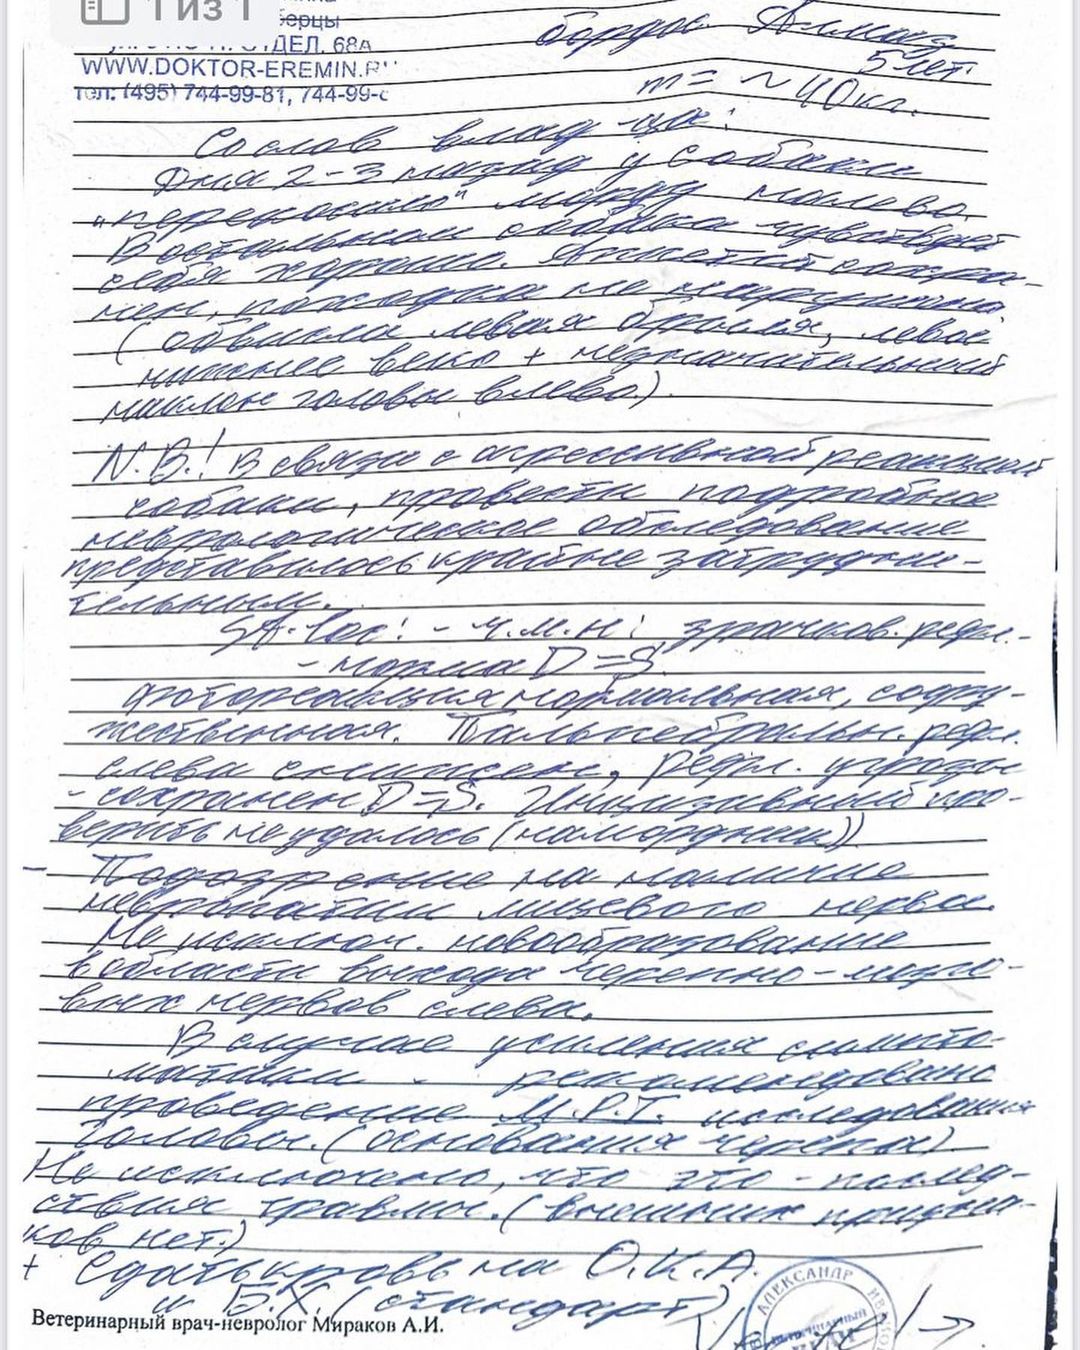 1 из 1
берцы
ОТДЕЛ. 68А
WWW.DOKTOR-EREMIN.R
тел: (495) 744-99-81, 744-99-
бордос
5 лет.
m = ~ 40 кг.
Со слов влад-ца:
Дня 2-3 назад у собаки
"перекосило" морду налево.
В остальном собака чувствует
себя хорошо. Аппетит сохра-
нен, походка не нарушена
(обвисла левая брыля, левое
нижнее веко + незначительный
наклон головы влево.)
N.B.! В связи с агрессивной реакцией
собаки, провести подробное
неврологическое обследование
представилось крайне затрудни-
тельным.
St. loc: - ч.м.н: зрачков. рефл.-
- норма D=S.
фотореакция нормальная, содру-
жественная. Пальпебральн. рефл.
слева снижен, рефл. угрозы
- сохранен D=S. про-
верить не удалось (намордник))
- Подозрение на наличие
невропатии лицевого нерва.
Не исключ. новообразование
в области выхода черепно-мозго-
вых нервов слева.
В случае усиления симпто-
матики - рекомендовано
проведение М.Р.Т. исследования
головы. (основания черепа)
Не исключено, что это - послед-
ствия травмы. (внешних призна-
ков нет.)
+ Сдать кровь на О.К.А.
и Б.Х. (стандарт)
АЛЕКСАНДР
Ветеринарный врач-невролог Мираков А.И.